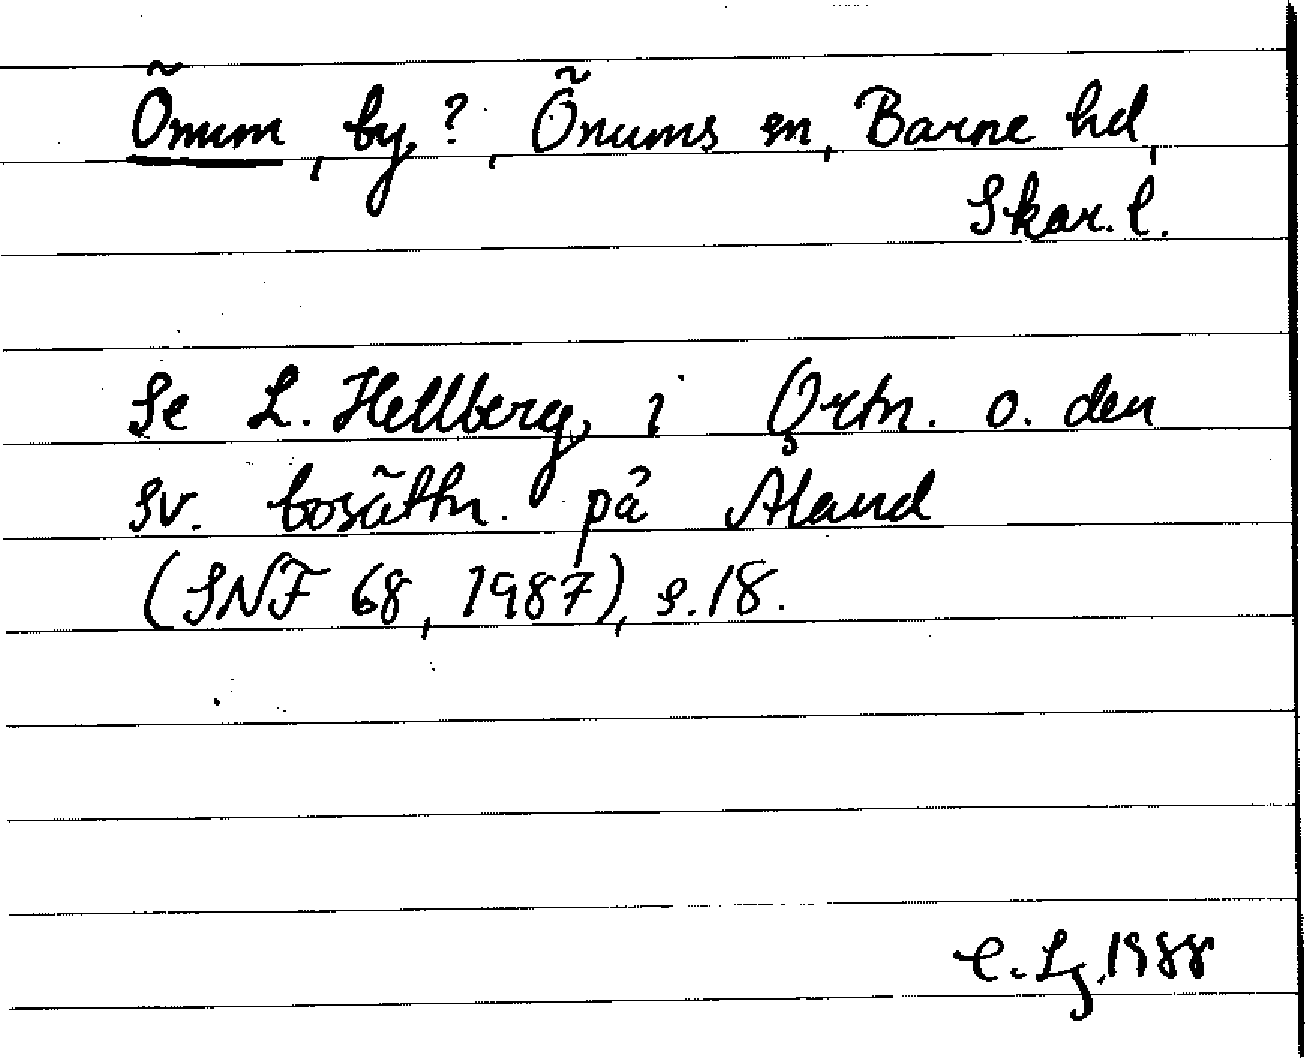 Önum, by?, Önums sn, Barne hd,
Skar. l.
Se L. Hellberg, i Ortn. o. den
sv. bosättn. på Åland
(SNF 68, 1987), s. 18.
C. Lj. 1988